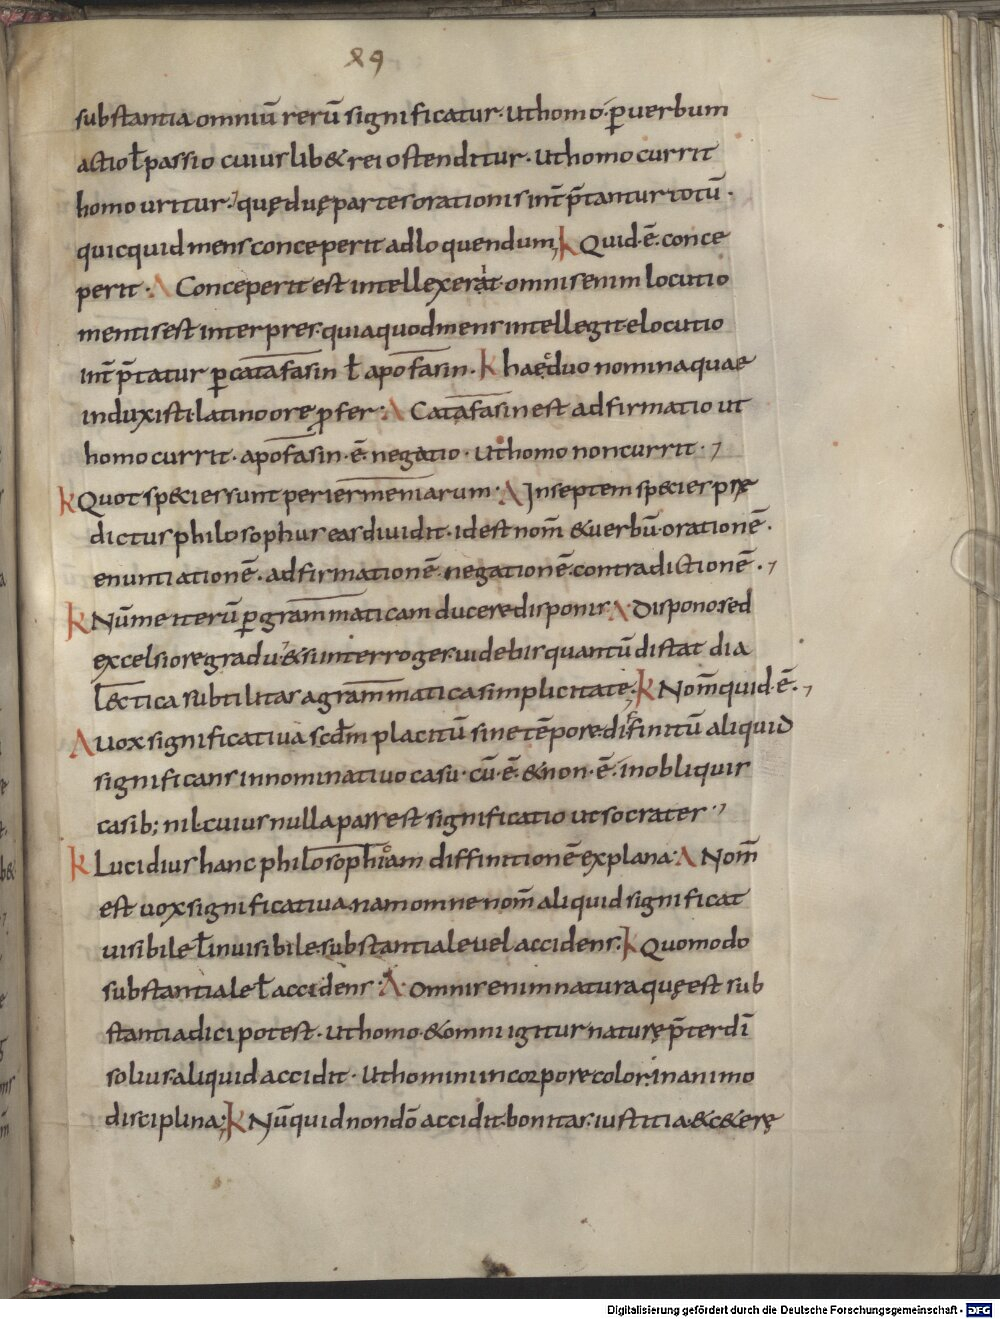 89
substantia omniū rerū significatur· ut homo· p̄ uerbum
actio ł passio cuiuslib& rei ostenditur· ut homo currit
homo uritur· quę duę partes orationis int̄p̄tantur totū·
quicquid mens conceperit ad loquendum; K Quid·ē· conce
perit· Λ Conceperit est intellexerit· omnis enim locutio
mentis est interpres· quia quod mens intellegit· elocutio
int̄p̄tatur p̄ catafasin ł apofasin· K haec duo nomina quae
induxisti· latino ore ꝓfer· Λ Catafasin est adfirmatio ut
homo currit· apofasin·ē· negatio· ut homo non currit·,
K Quot speties sunt periermeniarum· Λ In septem species prę
dictus philosophus eas diuidit· id est nom̄ & uerbū· orationē·
enuntiationē· adfirmationē· negationē· contradictionē·,
K Nū me iterū p̄ grammaticam ducere disponis· Λ Dispono sed
excelsiore gradu· & si interroges· uidebis quantū distat dia
lectica subtilitas a grammatica simplicitate; K Nom̄ quid·ē·,
Λ Uox significatiua scd̄m placitū sine tēpore· difinitū aliquid
significans in nominatiuo casu· cū·ē· & non·ē· in obliquis
casib; nil· cuius nulla pars est significatio ut socrates·,
K Lucidius hanc philosophiam diffinitionē explana· Λ Nom̄
est uox significatiua· nam omne nom̄ aliquid significat
uisibile ł inuisibile· substantiale uel accidens· K Quomodo
substantiale ł accidens· Λ Omnis enim natura quę est sub
stantia dici potest· ut homo· & omni igitur naturę p̄ter dī
solius· aliquid accidit· ut homini in corpore color· in animo
disciplina; K Nūquid non dō accidit· bonitas· iustitia· & c&erę
Digitalisierung gefördert durch die Deutsche Forschungsgemeinschaft - DFG